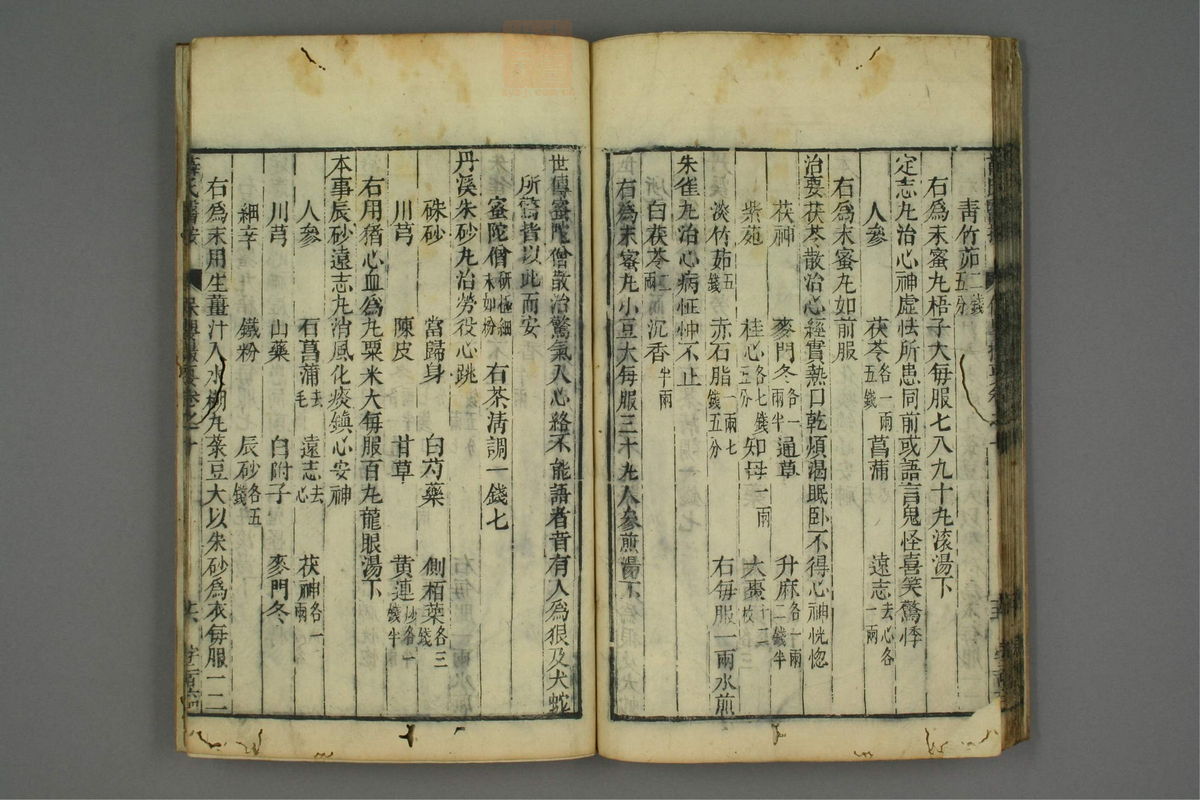 青竹茹二錢五分
右爲末蜜丸梧子大每服七八九十丸滚湯下
定志丸治心神虚怯所患同前或語言鬼怪喜笑驚悸
人參 茯苓各一兩五錢 菖蒲 遠志去心各一兩
右爲末蜜丸如前服
治要茯苓散治心經實熱口乾煩渴眠卧不得心神恍惚
茯神 麥門冬各一兩半 通草 升麻各一兩二錢半
紫菀 桂心各七錢五分 知母一兩 大棗十二枚
淡竹茹五錢 赤石脂一兩七錢五分 右每服一兩水煎
朱雀丸治心病怔忡不止
白茯苓二兩 沉香半兩
右爲末蜜丸小豆大每服三十丸人參煎湯下
世傳蜜陀僧散治驚氣入心絡不能語者昔有人爲狼及犬蛇
所驚皆以此而安
蜜陀僧研極細末如粉 右茶清調一錢七
丹溪朱砂丸治勞役心跳
硃砂 當歸身 白芍藥 側栢葉各三錢
川芎 陳皮 甘草 黄連炒各一錢半
右用猪心血爲丸粟米大每服百丸龍眼湯下
本事辰砂遠志丸消風化痰鎮心安神
人參 石菖蒲去毛 遠志去心 茯神各一兩
川芎 山藥 白附子 麥門冬
細辛 鐵粉 辰砂各五錢
右爲末用生薑汁入水糊丸菉豆大以朱砂爲衣每服一二
薛氏醫按